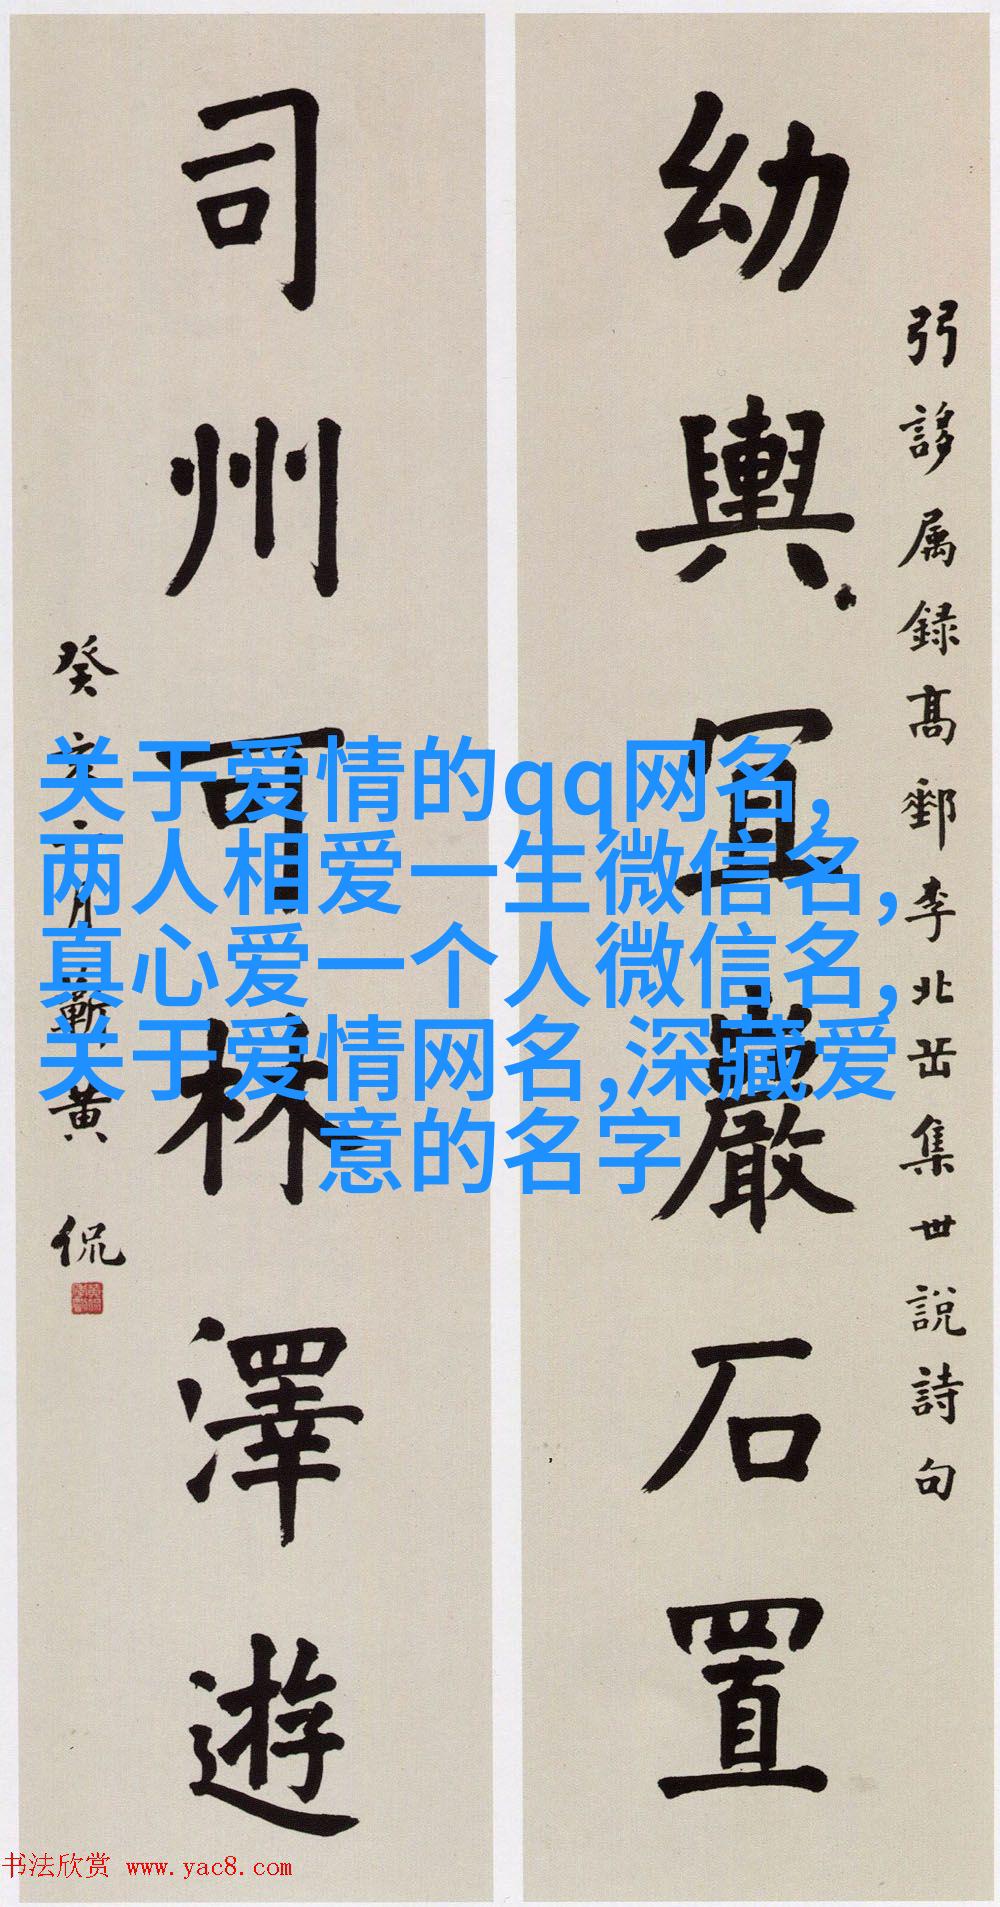 弜誃属録高郵李北岳集世說詩句
幼輿宜巖石置
司州可林澤遊
癸亥六月蘄黄侃
关于爱情的qq网名,
两人相爱一生微信名,
真心爱一个人微信名,
关于爱情网名,深藏爱
意的名字
书法欣赏 www.yac8.com